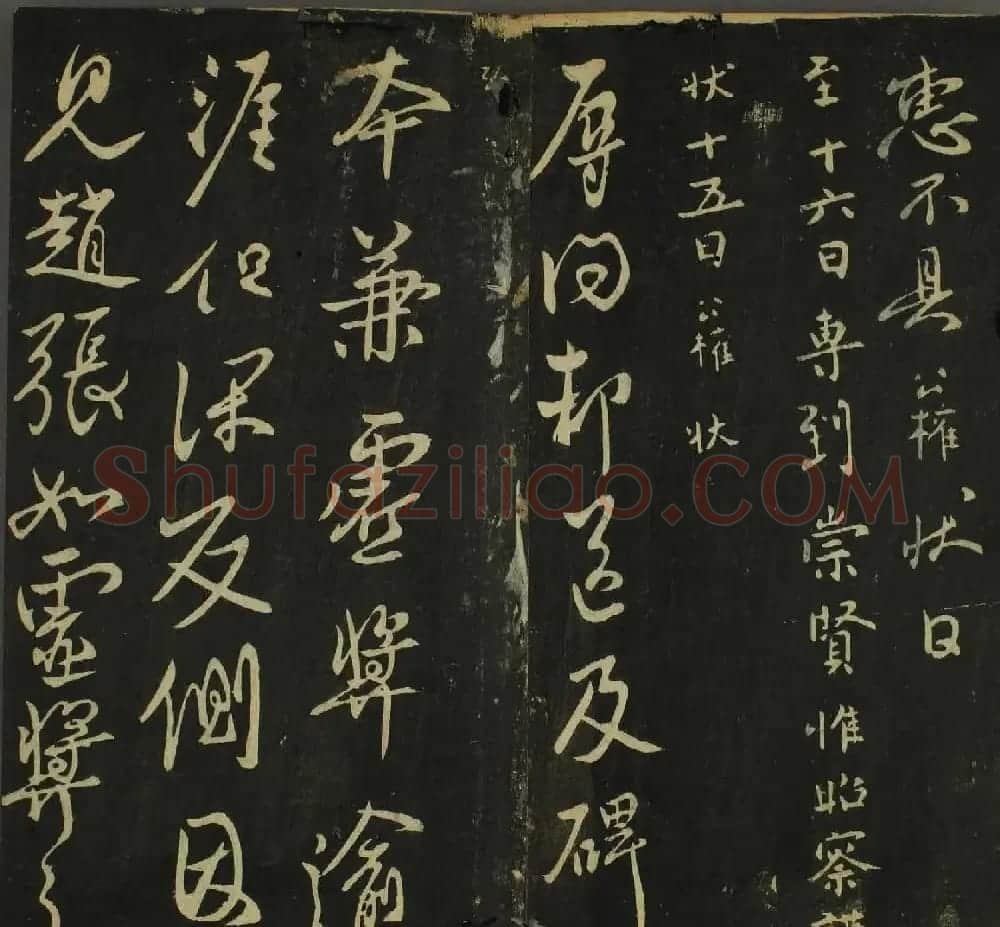 惠不具公權狀日
至十六日專到崇賢惟昭察謹
狀十五日公權狀
辱問却送及碑
本兼靈獎渝
涯但深反側因
見趙張如靈獎之
Shufaziliao.COM